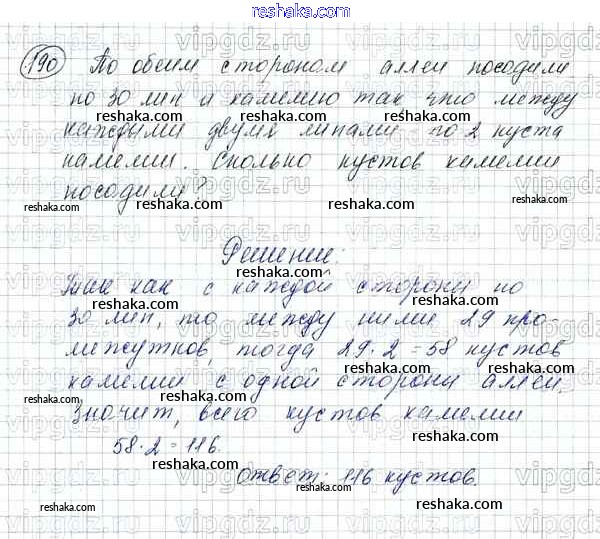 reshaka.com
190 По обеим сторонам аллеи посадили
по 30 лип и камелию так что между
каждыми двумя липами по 2 куста
камелии. Сколько кустов камелии
посадили?
Решение:
Так как с каждой стороны по
30 лип, то между ними 29 про-
межутков, тогда 29·2=58 кустов
камелии с одной стороны аллеи,
значит, всего кустов камелии
58·2=116.
Ответ: 116 кустов.